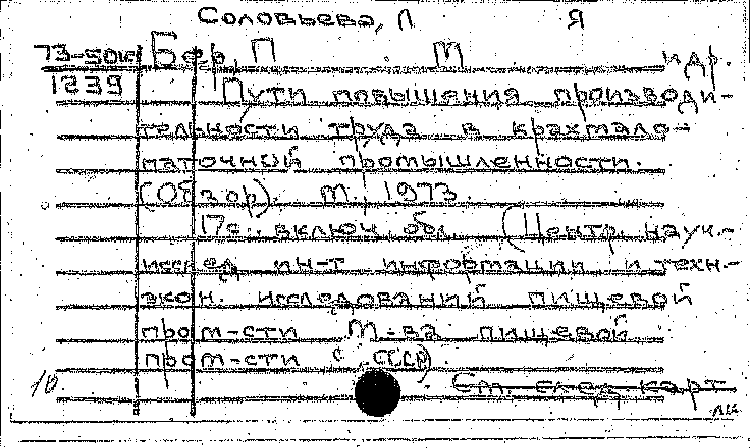 Соловьева, Л Я
73-50к Бер, П М и др.
1239 Пути повышения производи-
тельности труда в крахмало-
паточной промышленности.
(Обзор). М. 1973.
17с. включ обл. (Центр. науч.-
исслед ин-т информации и техн.-
экон. исследований пищевой
пром-сти М-ва пищевой
пром-сти СССР).
10. См. след карт